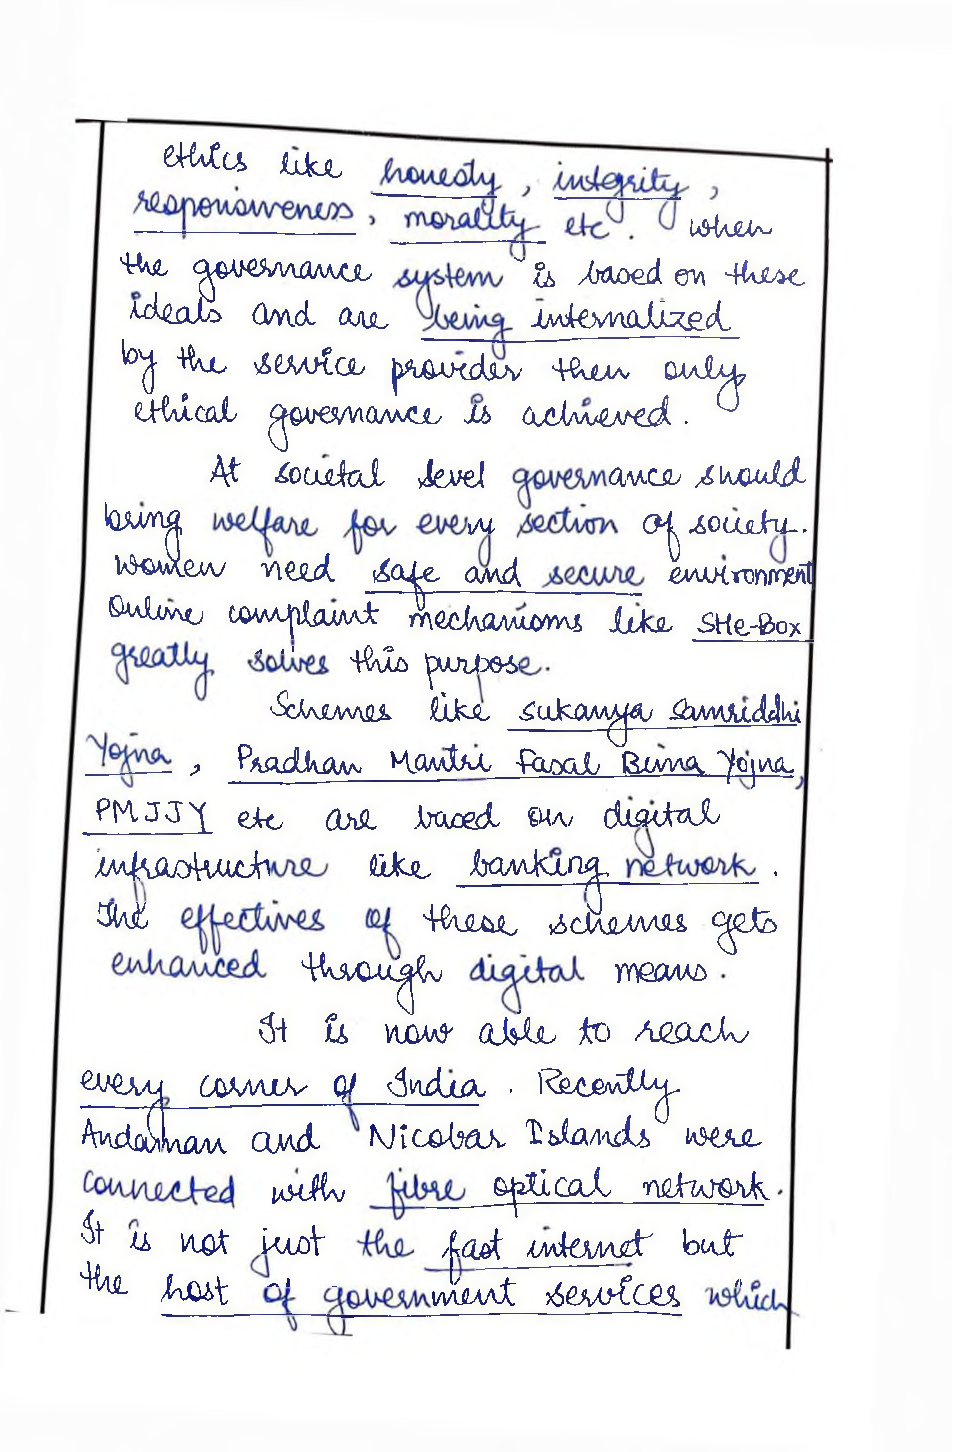 ethics like honesty, integrity,
responsiveness, morality etc. when
the governance system is based on these
ideals and are being internalized
by the service provider then only
ethical governance is achieved.
At societal level governance should
bring welfare for every section of society.
women need safe and secure environment
Online complaint mechanisms like SHe-Box
greatly solves this purpose.
Schemes like Sukanya Samriddhi
Yojna, Pradhan Mantri Fasal Bima Yojna,
PMJJY etc are based on digital
infrastructure like banking network.
The effectives of these schemes gets
enhanced through digital means.
It is now able to reach
every corner of India. Recently
Andaman and Nicobar Islands were
connected with fibre optical network.
It is not just the fast internet but
the host of government services which